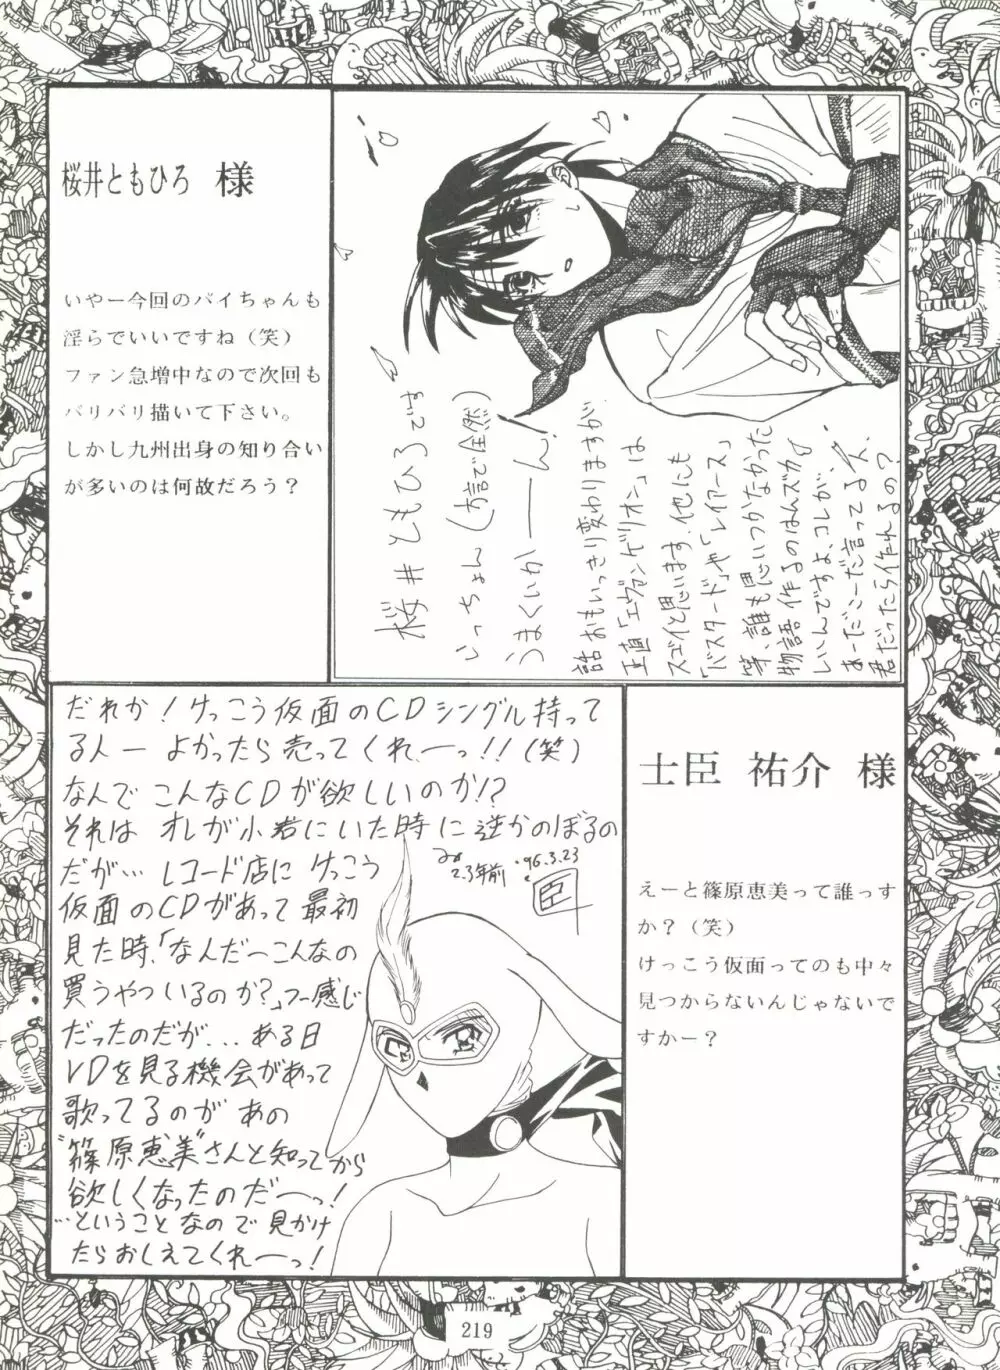 桜井ともひろ 様
いやー今回のバイちゃんも
淫らでいいですね(笑)
ファン急増中なので次回も
バリバリ描いて下さい。
しかし九州出身の知り合い
が多いのは何故だろう?
桜井ともひろです
いっちょん(方言で全然)
うまくいかーーん、
話おもいっきり変わりますが
正直「エヴァンゲリオン」は
スゴイと思います、他にも
「バスタード」や「レイアース」
等、誰も思いつかなかった
物語作るのはムズカイ
いいんですよ、コレが、
あーだこーだ言ってる人、
君だったら作れるの?
だれか!けっこう仮面のCDシングル持って
る人ー よかったら売ってくれーっ!!(笑)
なんで こんなCDが欲しいのか!?
それは オレが小岩にいた時に逆かのぼるの
だが… レコード店に けっこう
2.3年前
'96.3.23
臣
仮面のCDがあって 最初
見た時、「なんだーこんなの
買うやついるのか?」フー感じ
だったのだが... ある日
LDを見る機会があって
歌ってるのが あの
“篠原恵美”さんと知ってから
欲しくなったのだーっ!
…ということなので 見かけ
たらおしえてくれーっ!
士臣 祐介 様
えーと篠原恵美って誰っす
か?(笑)
けっこう仮面ってのも中々
見つからないんじゃないで
すかー?
219